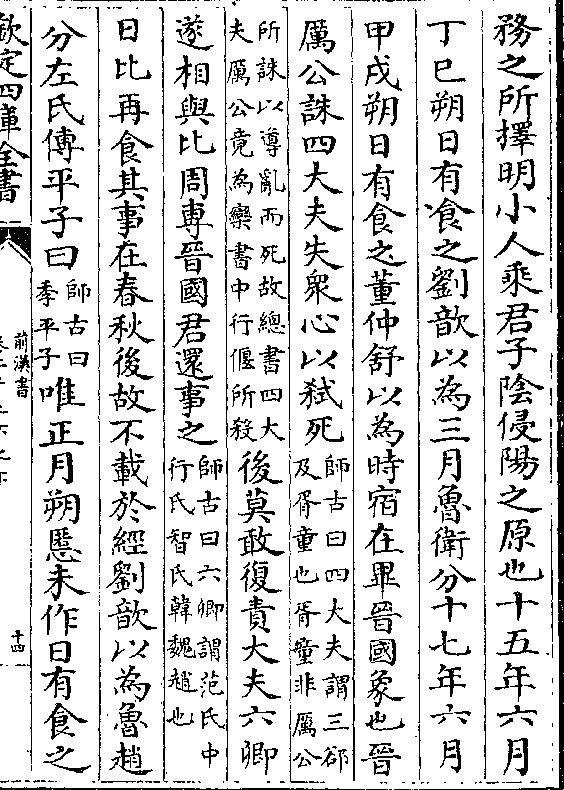 務之所擇明小人乘君子陰侵陽之原也十五年六月
丁巳朔日有食之劉歆以為三月魯衛分十七年六月
甲戌朔日有食之董仲舒以為時宿在畢晉國象也晉
厲公誅四大夫失衆心以弑死師古曰四大夫謂三郤及胥童也胥童非厲公
所誅以導亂而死故總書四大夫厲公竟為欒書中行偃所殺後莫敢復責大夫六卿
遂相與比周專晉國君還事之師古曰六卿謂范氏中行氏智氏韓魏趙也
日比再食其事在春秋後故不載於經劉歆以為魯趙
分左氏傳平子曰師古曰季平子唯正月朔慝未作日有食之
欽定四庫全書
前漢書
十四